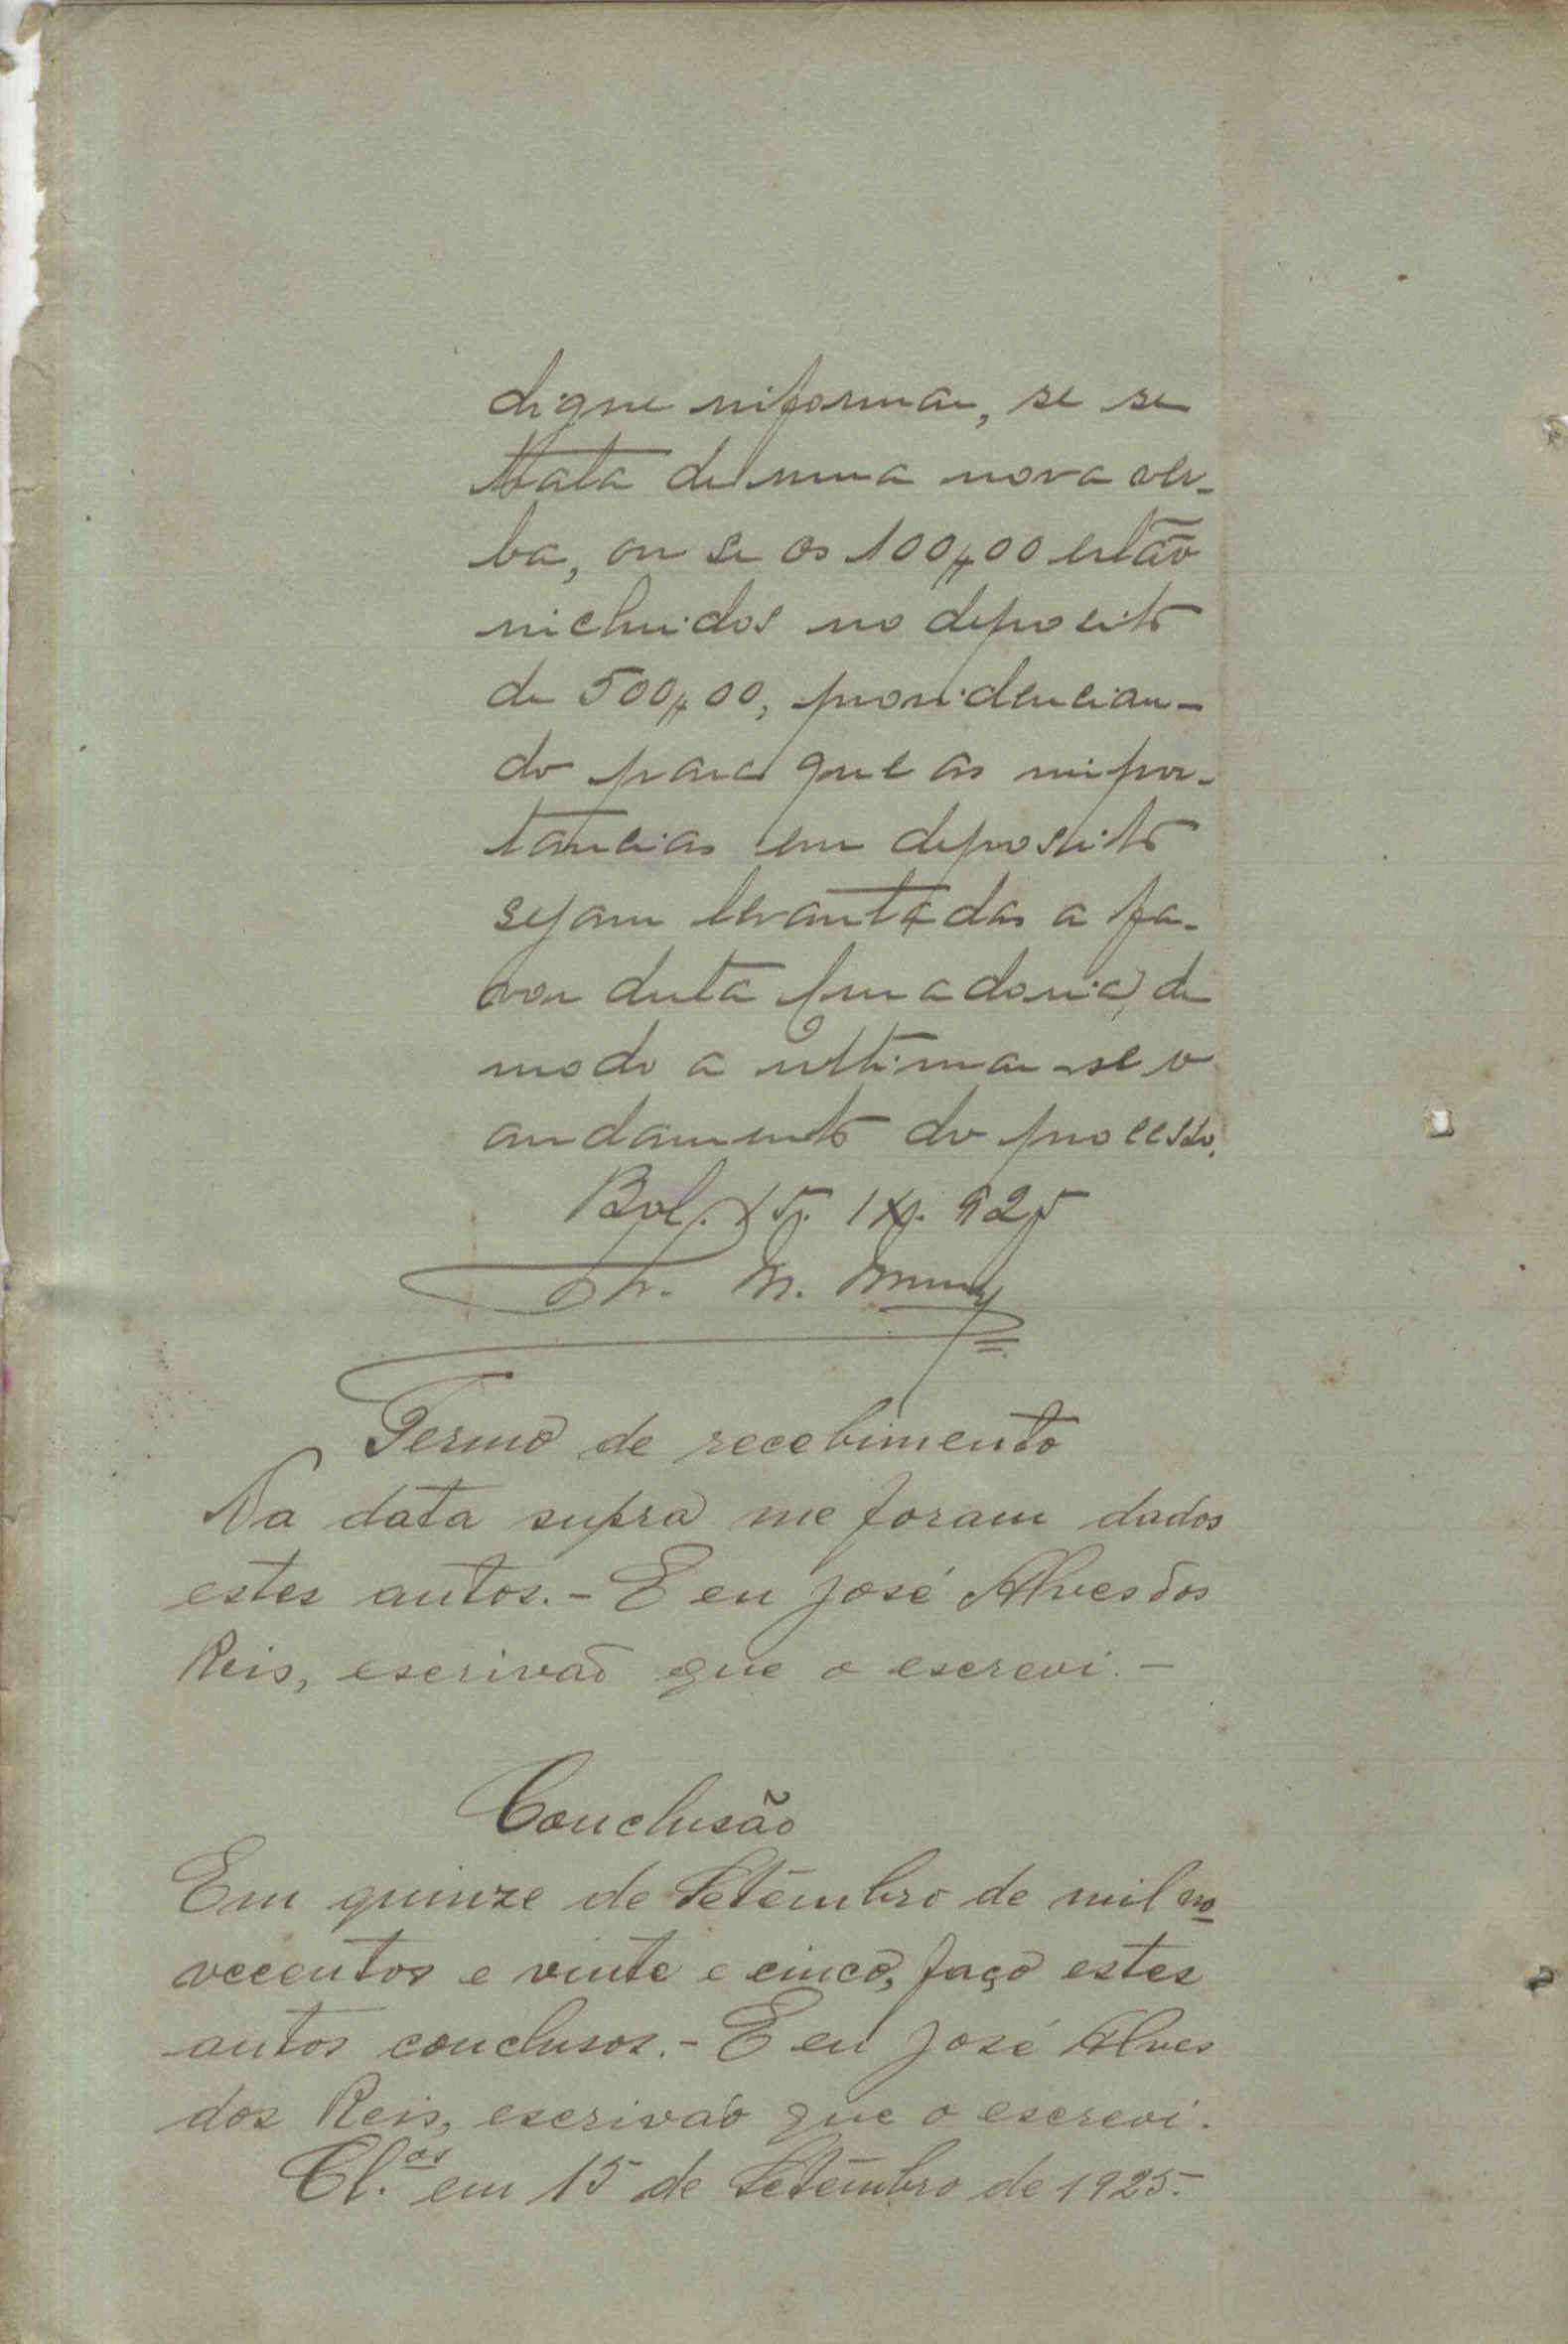 digne informar, se se
trata de uma nova ver-
ba, ou se os 100$00 estão
incluidos no deposito
de 500$00, providencian-
do para que as impor-
tancias em deposito
sejam levantadas a fa-
vor desta curadoria, de
modo a ultimar-se o
andamento do processo.
Bol. 15. IX. 925
Termo de recebimento
Na data supra me foram dados
estes autos.- E eu José Alves dos
Reis, escrivão que o escrevi.-
Conclusão
Em quinze de Setembro de mil no
vecentos e vinte e cinco, faço estes
autos conclusos.- E eu José Alves
dos Reis, escrivão que o escrevi.
Cl.os em 15 de Setembro de 1925.